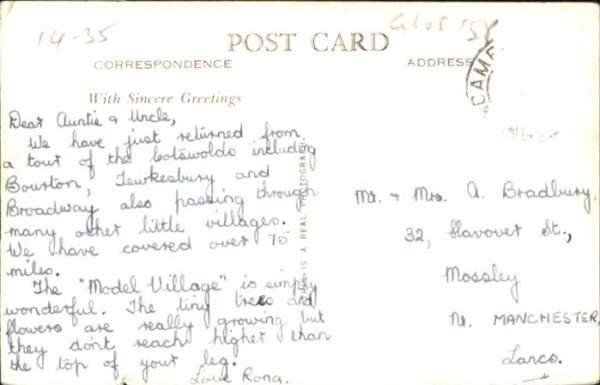 14-35
GLOS 15Y
POST CARD
CORRESPONDENCE
ADDRESS
CAM
With Sincere Greetings
Dear Auntie & Uncle,
We have just returned from
a tour of the Cotswolds including
Bourton, Tewkesbury and
Broadway also passing through
many other little villages.
We have covered over 70
miles.
The "Model Village" is simply
wonderful. The tiny trees and
flowers are really growing but
they don't reach higher than
the top of your leg.
Love Rona.
THIS IS A REAL PHOTOGRAPH
Mr. & Mrs. A. Bradbury,
32, Hanover St.,
Mossley
Nr. MANCHESTER,
Lancs.